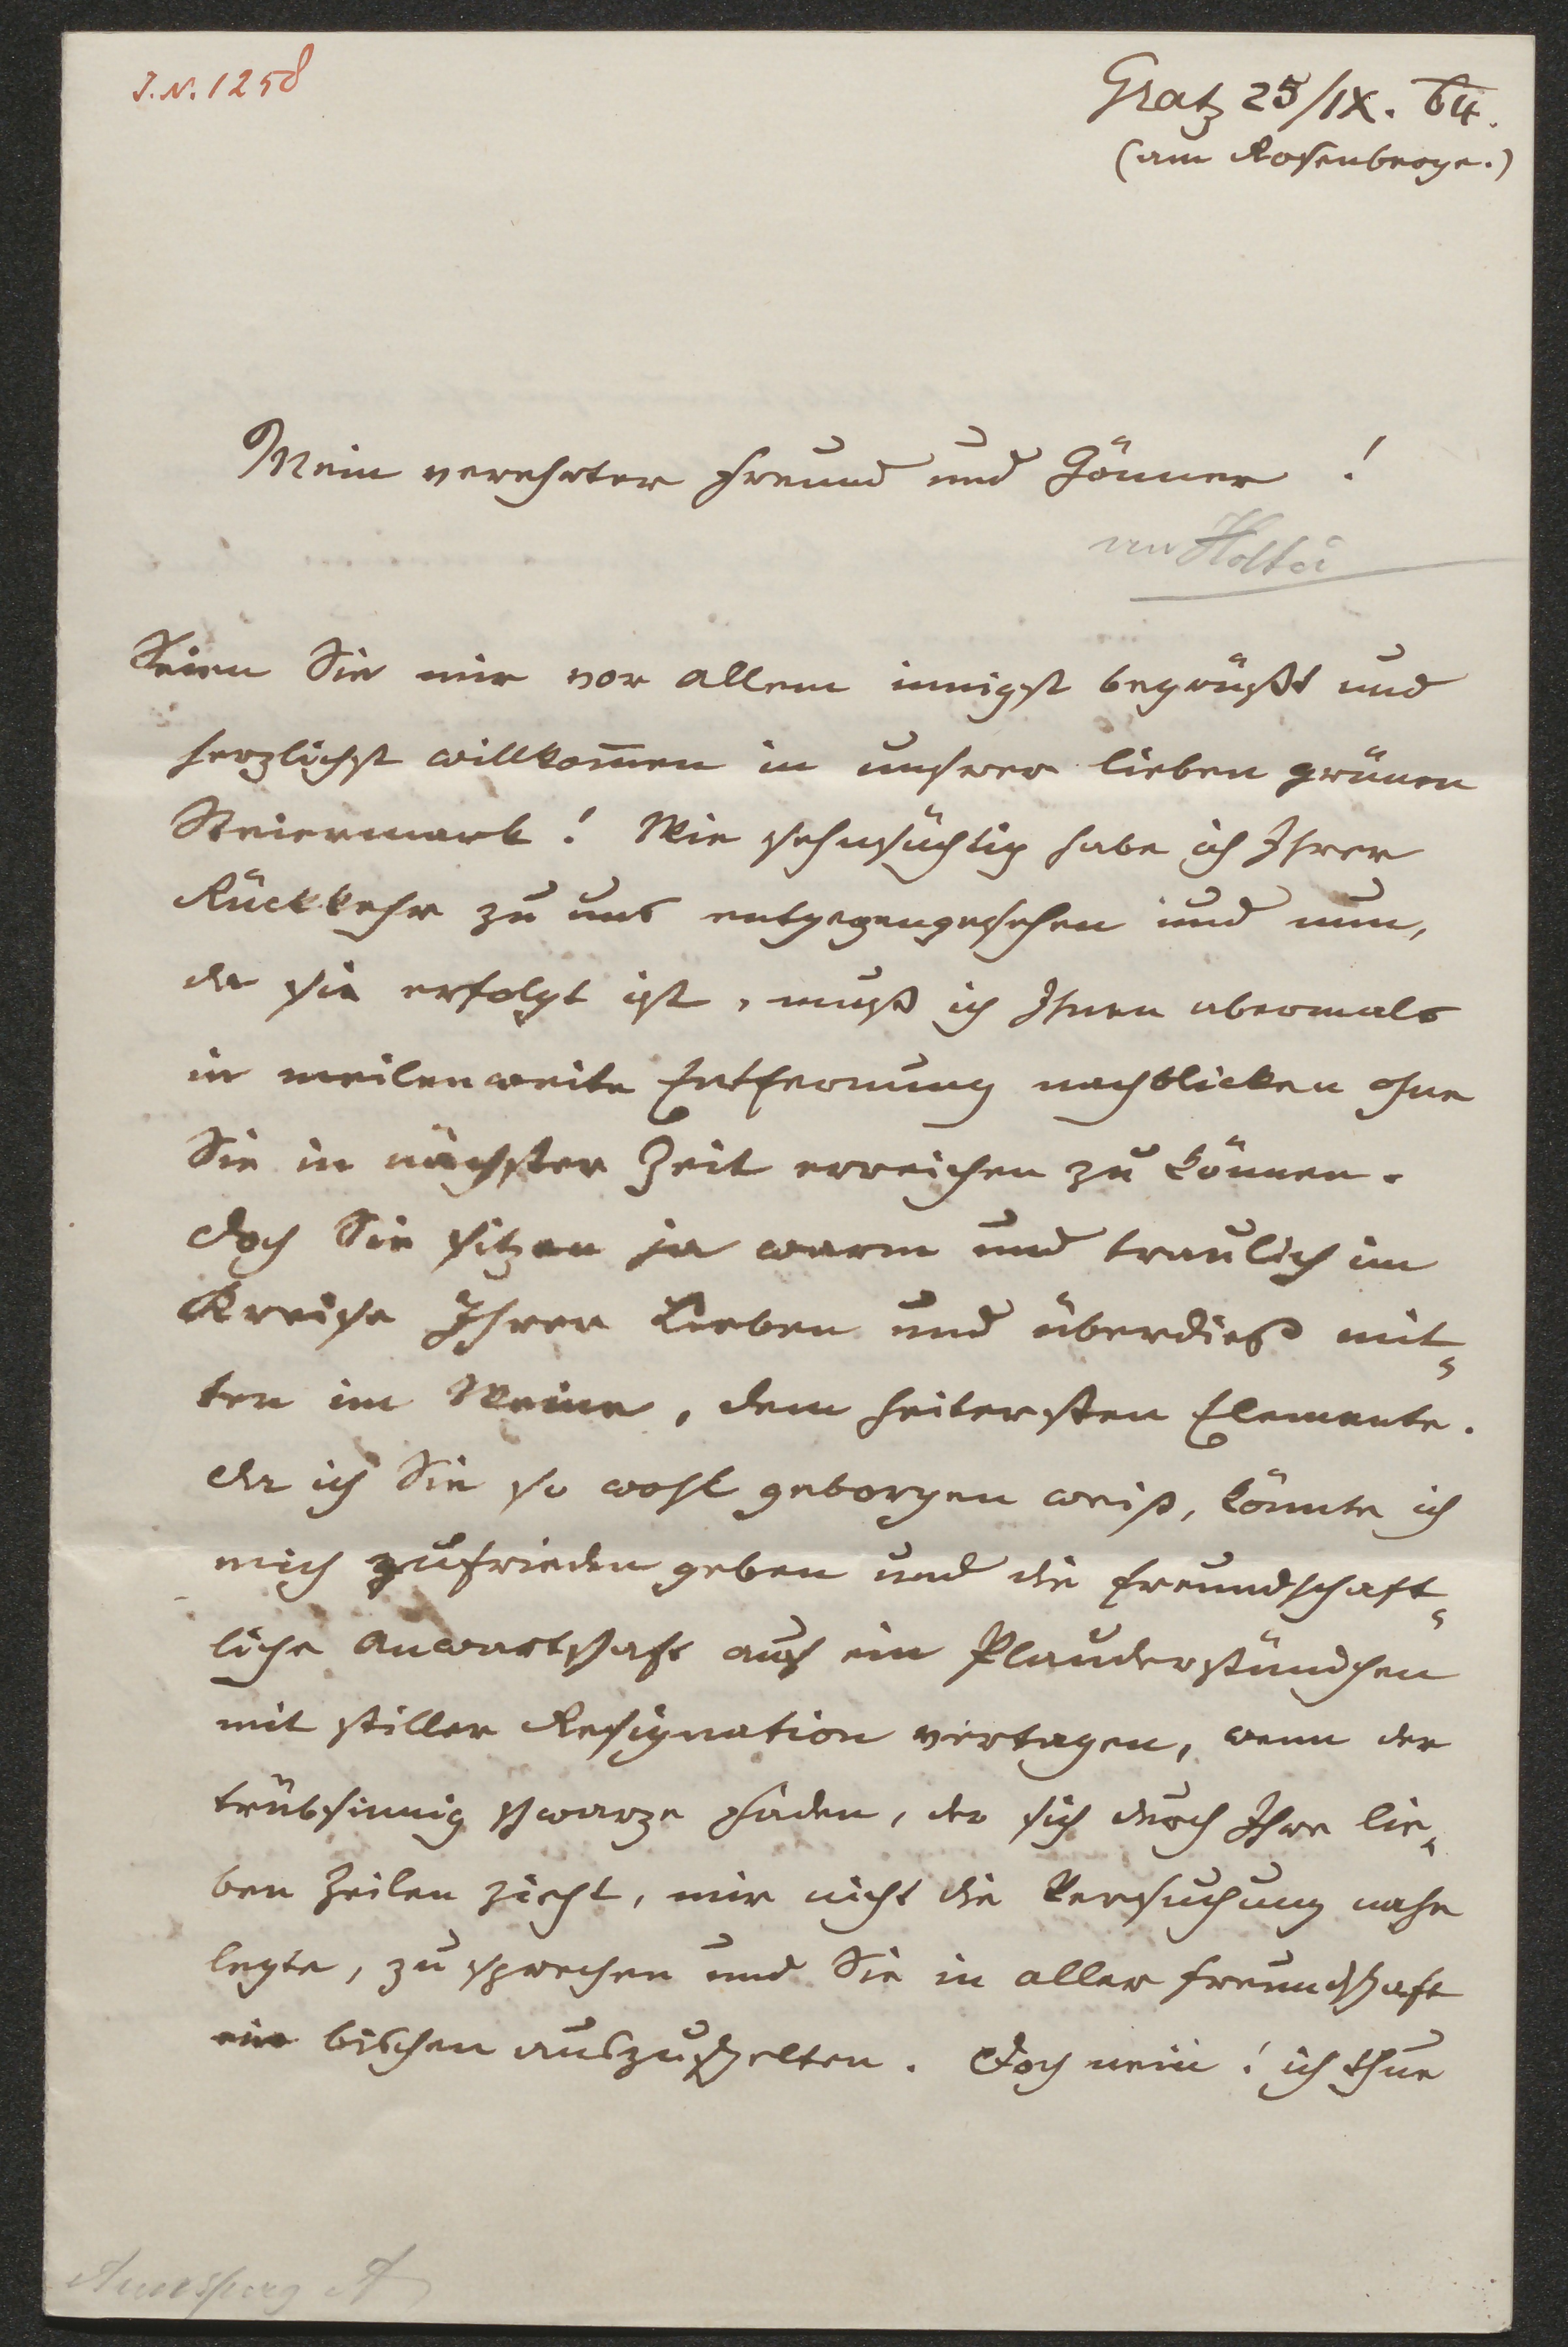 J.N. 1258
Gratz 25/IX. 64.
(am Rosenberge.)
Mein verehrter Freund und Gönner!
an Holtei
Seien Sie mir vor allem innigst begrüßt und
herzlichst willkom̅en in unsrer lieben grünen
Steiermark! Wie sehnsüchtig habe ich Ihrer
Rückkehr zu uns entgegengesehen und nun,
da sie erfolgt ist, muß ich Ihnen abermals
in meilenweite Entfernung nachblicken ohne
Sie in nächster Zeit erreichen zu können.
Doch Sie sitzen ja warm und traulich im
Kreise Ihrer Lieben und überdieß mit-
ten im Weine, dem heitersten Elemente.
Da ich Sie so wohl geborgen weiß, könnte ich
mich zufrieden geben und die freundschaft-
liche Anwartschaft auf ein Plauderstündchen
mit stiller Resignation vertagen, wenn der
trübsinnig schwarze Faden, der sich durch Ihre lie-
ben Zeilen zieht, mir nicht die Versuchung nahe
legte, zu sprechen und Sie in aller Freundschaft
ein bischen auszuschelten. Doch nein! ich thue
Auersperg A